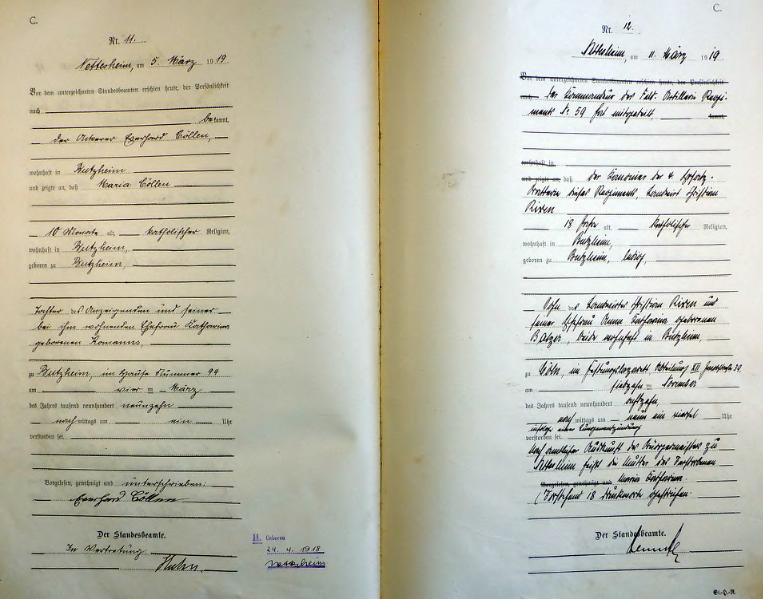 C.
Nr. 11.
Nettesheim, am 5. März 1919
Vor dem unterzeichneten Standesbeamten erschien heute, der Persönlichkeit
nach
bekannt,
der Ackerer Everhard Cöllen,
wohnhaft in Butzheim
und zeigte an, daß Maria Cöllen
10 Monate alt, katholischer Religion,
wohnhaft in Butzheim,
geboren zu Butzheim,
Tochter des Anzeigenden und seiner
bei ihm wohnenden Ehefrau Katharina
geborenen Komanns,
zu Butzheim, im Hause Nummer 99
am vier = März
des Jahres tausend neunhundert neunzehn
nachmittags um ein Uhr
verstorben sei.
Vorgelesen, genehmigt und unterschrieben:
Everhard Cöllen
Der Standesbeamte.
In Vertretung
11. Geboren
24. 4. 1918
Nettesheim
C.
Nr. 12.
Nettesheim, am 11. März 1919
Vor dem unterzeichneten Standesbeamten erschien heute, der Persönlichkeit
nach Der Kommandeur des Feld-Artillerie Regi-
ments Nr. 59 hat mitgeteilt
wohnhaft in
und zeigte an, daß der Kanonier der
Batterie dieses Regiments, Landwirt Christian
Rixen
18 Jahre alt, katholischer Religion,
wohnhaft in Butzheim,
geboren zu Butzheim, ledig,
Sohn des Landwirtes Christian Rixen und
seiner Ehefrau Anna Katharina geborenen
Balzer, beide wohnhaft in Butzheim,
zu Cöln, im Festungslazarett Abteilung XII
am siebzehn = November
des Jahres tausend neunhundert achtzehn
nachmittags um neun ein viertel Uhr
infolge einer Lungenentzündung
verstorben sei.
Nach amtlicher Auskunft des Bürgermeisters zu
Nettesheim heißt die Mutter des Verstorbenen
Vorgelesen, genehmigt und Maria Katharina.
(Vorstehend 18 Druckworte gestrichen.
Der Standesbeamte.
St.-R.-R.